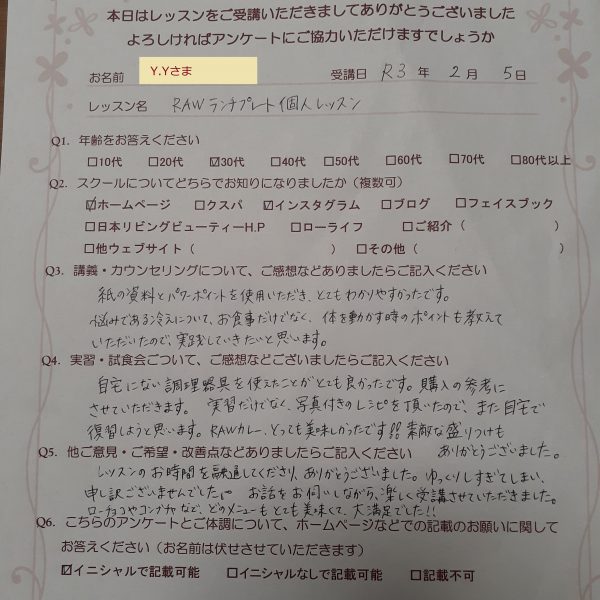 本日はレッスンをご受講いただきましてありがとうございました
よろしければアンケートにご協力いただけますでしょうか
お名前 Y.Yさま 受講日 R3 年 2 月 5 日
レッスン名 RAWランチプレート個人レッスン
Q1. 年齢をお答えください
□10代 □20代 ☑30代 □40代 □50代 □60代 □70代 □80代以上
Q2. スクールについてどちらでお知りになりましたか（複数可）
☑ホームページ □クスパ ☑インスタグラム □ブログ □フェイスブック
□日本リビングビューティーH.P □ローライフ □ご紹介（ ）
□他ウェブサイト（ ） □その他（ ）
Q3. 講義・カウンセリングについて、ご感想などありましたらご記入ください
紙の資料とパワーポイントを使用いただき、とてもわかりやすかったです。
悩みである冷えについて、お食事だけでなく、体を動かす時のポイントも教えて
いただいたので、実践していきたいと思います。
Q4. 実習・試食会ごついて、ご感想などございましたらご記入ください
自宅にない調理器具を使えたことがとても良かったです。購入の参考に
させていただきます。 実習だけでなく、写真付きのレシピを頂いたので、また自宅で
復習しようと思います。RAWカレー、とっても美味しかったです!!素敵な盛りつけも
ありがとうございました。
Q5. 他ご意見・ご希望・改善点などありましたらご記入ください
レッスンのお時間を融通してくださり、ありがとうございました。ゆっくりしすぎてしまい、
申し訳ございませんでした。 お話をお伺いしながら、楽しく受講させていただきました。
ローチョコやコンブチャなど、どのメニューもとても美味しくて、大満足でした!!
Q6. こちらのアンケートとご体調について、ホームページなどでの記載のお願いに関して
お答えください（お名前は伏せさせていただきます）
☑イニシャルで記載可能 □イニシャルなしで記載可能 □記載不可